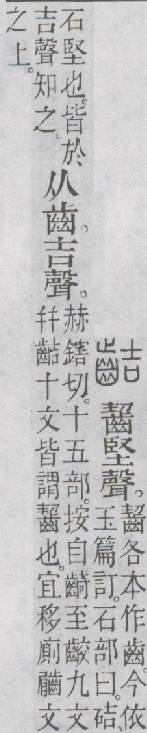 齧堅聲。
齧各本作齒。今依
玉篇訂。石部曰。硈、
石堅也。皆於
吉聲知之。
从齒。吉聲。
赫鎋切。十五部。按自齮至齩九文
幷十文皆謂齧也。宜移廁文
之上。